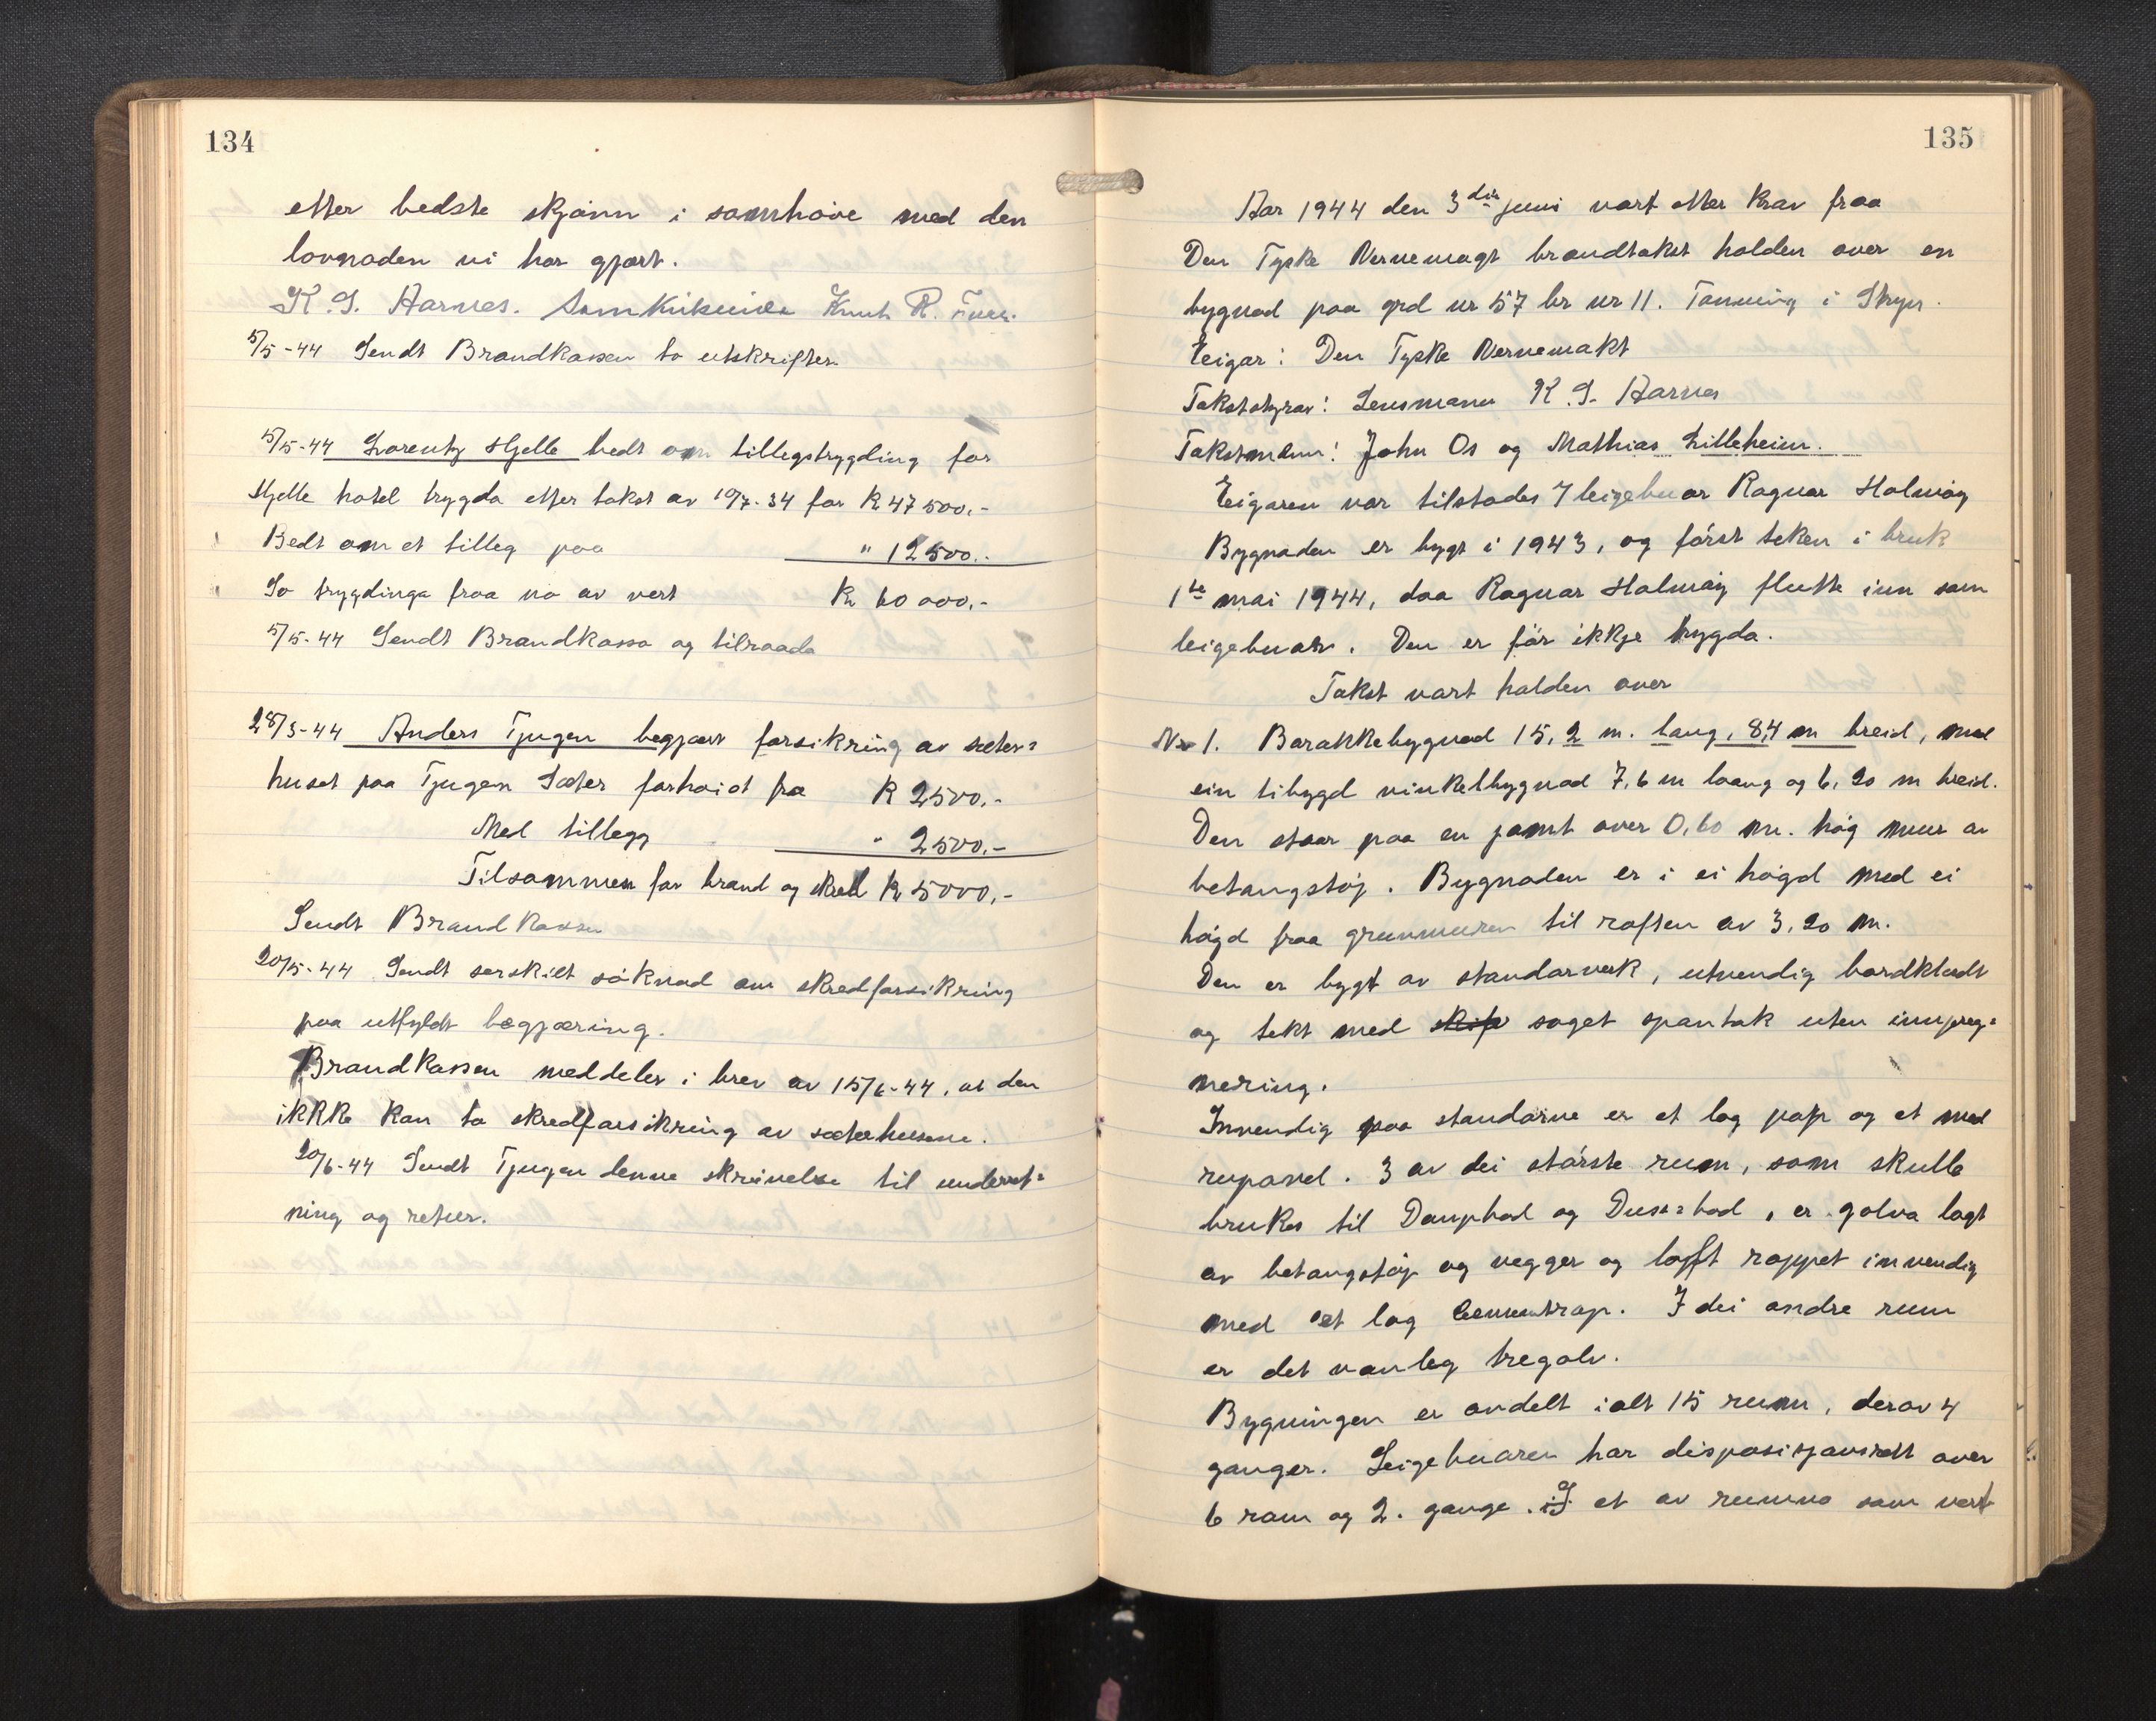 134
etter bedste skjønn i samhøve med den
lovnaden vi har gjort.
K. S. Aarnes.
5/5-44 Sendt Brandkassen to utskrifter.
5/5-44 Lorentz Hjelle bedt om tillegstrygding for
Hjelle hotel trygda etter takst av 19/7-34 for Kr 47500.-
Bedt om et tilleg paa " 12500.-
So trygdinga fraa no av vert Kr 60000.-
5/5-44 Sendt Brandkassa og tilraada
28/3-44 Anders Tjugen begjært forsikring av sæter=
huset paa Tjugen Sæter forhøiet fra Kr 2500.-
Med tillegg " 2500.-
Tilsammen for brand og skred Kr 5000.-
Sendt Brandkassen
20/5-44 Sendt serskilt søknad om skredforsikring
paa utfyldt begjæring.
Brandkassen meddeler i brev av 15/6-44, at den
ikke kan ta skredforsikring av sæterhusene.
20/6-44 Sendt Tjugen denne skrivelse til underret=
ning og retur.
135
Aar 1944 den 3die juni vart etter krav fraa
Den Tyske Vernemagt brandtakst halden over en
bygnad paa grd nr 57 br nr 11. Tonning i Stryn.
Eigar: Den Tyske Vernemakt
Takststyrar: Lensmann K. S. Aarnes
Takstmenn: John Os og Mathias Lilleheim.
Eigaren var tilstades / leigebuar Ragnar Holmøy
Bygnaden er bygt i 1943, og først teken i bruk
1ste mai 1944, daa Ragnar Holmøy flutte inn som
leigebuar. Den er før ikkje trygda.
Takst vart halden over
Nr 1. Barakkebygnad 15,2 m. lang, 8,4 m breid, med
ein tibygd vinkelbygnad 7,6 m laang og 6,20 m breid.
Den staar paa en jamt over 0,60 m. høg mur av
betongstøp. Bygnaden er i ei høgd med ei
høgd fraa grunnmuren til raften av 3,20 m.
Den er bygt av standarverk, utvendig bordklædt
og tekt med skif saget spontak uten impreg=
nering.
Innvendig paa standarne er et lag pap og et med
rupanel. 3 av dei største rum, som skulle
brukes til Dampbad og Dus=bad, er golva lagt
av betongstøp og vegger og loft rappet innvendig
med et lag Cementrap. I dei andre rum
er det vanleg tregolv.
Bygningen er ondelt ialt 15 rum, derav 4
ganger. Leigebuaren har disposisjonsrett over
6 rom og 2. gange. I et av rumma som vert